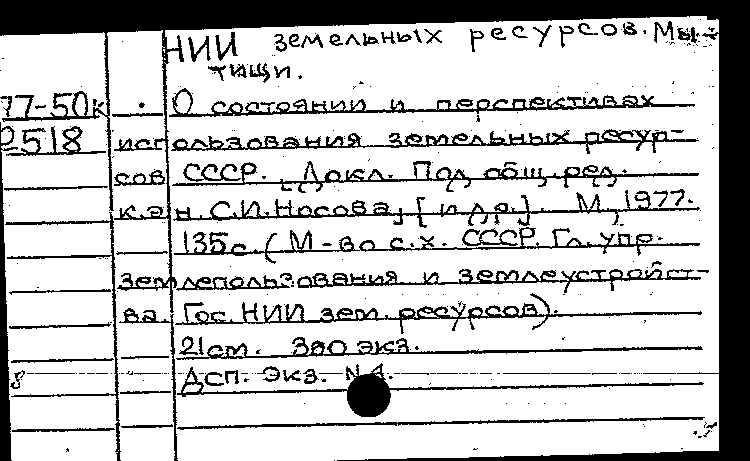 НИИ земельных ресурсов. Мы-
тищи.
77-50к . О состоянии и перспективах
2518 использования земельных ресур-
сов СССР. [Докл. Под общ. ред.
к.э.н. С.И. Носова, [и др.]. М., 1977.
135 с. (М-во с.х. СССР. Гл. упр.
землепользования и землеустройст-
ва. Гос. НИИ зем. ресурсов).
21 см. 300 экз.
8 ДСП. Экз. N 4.